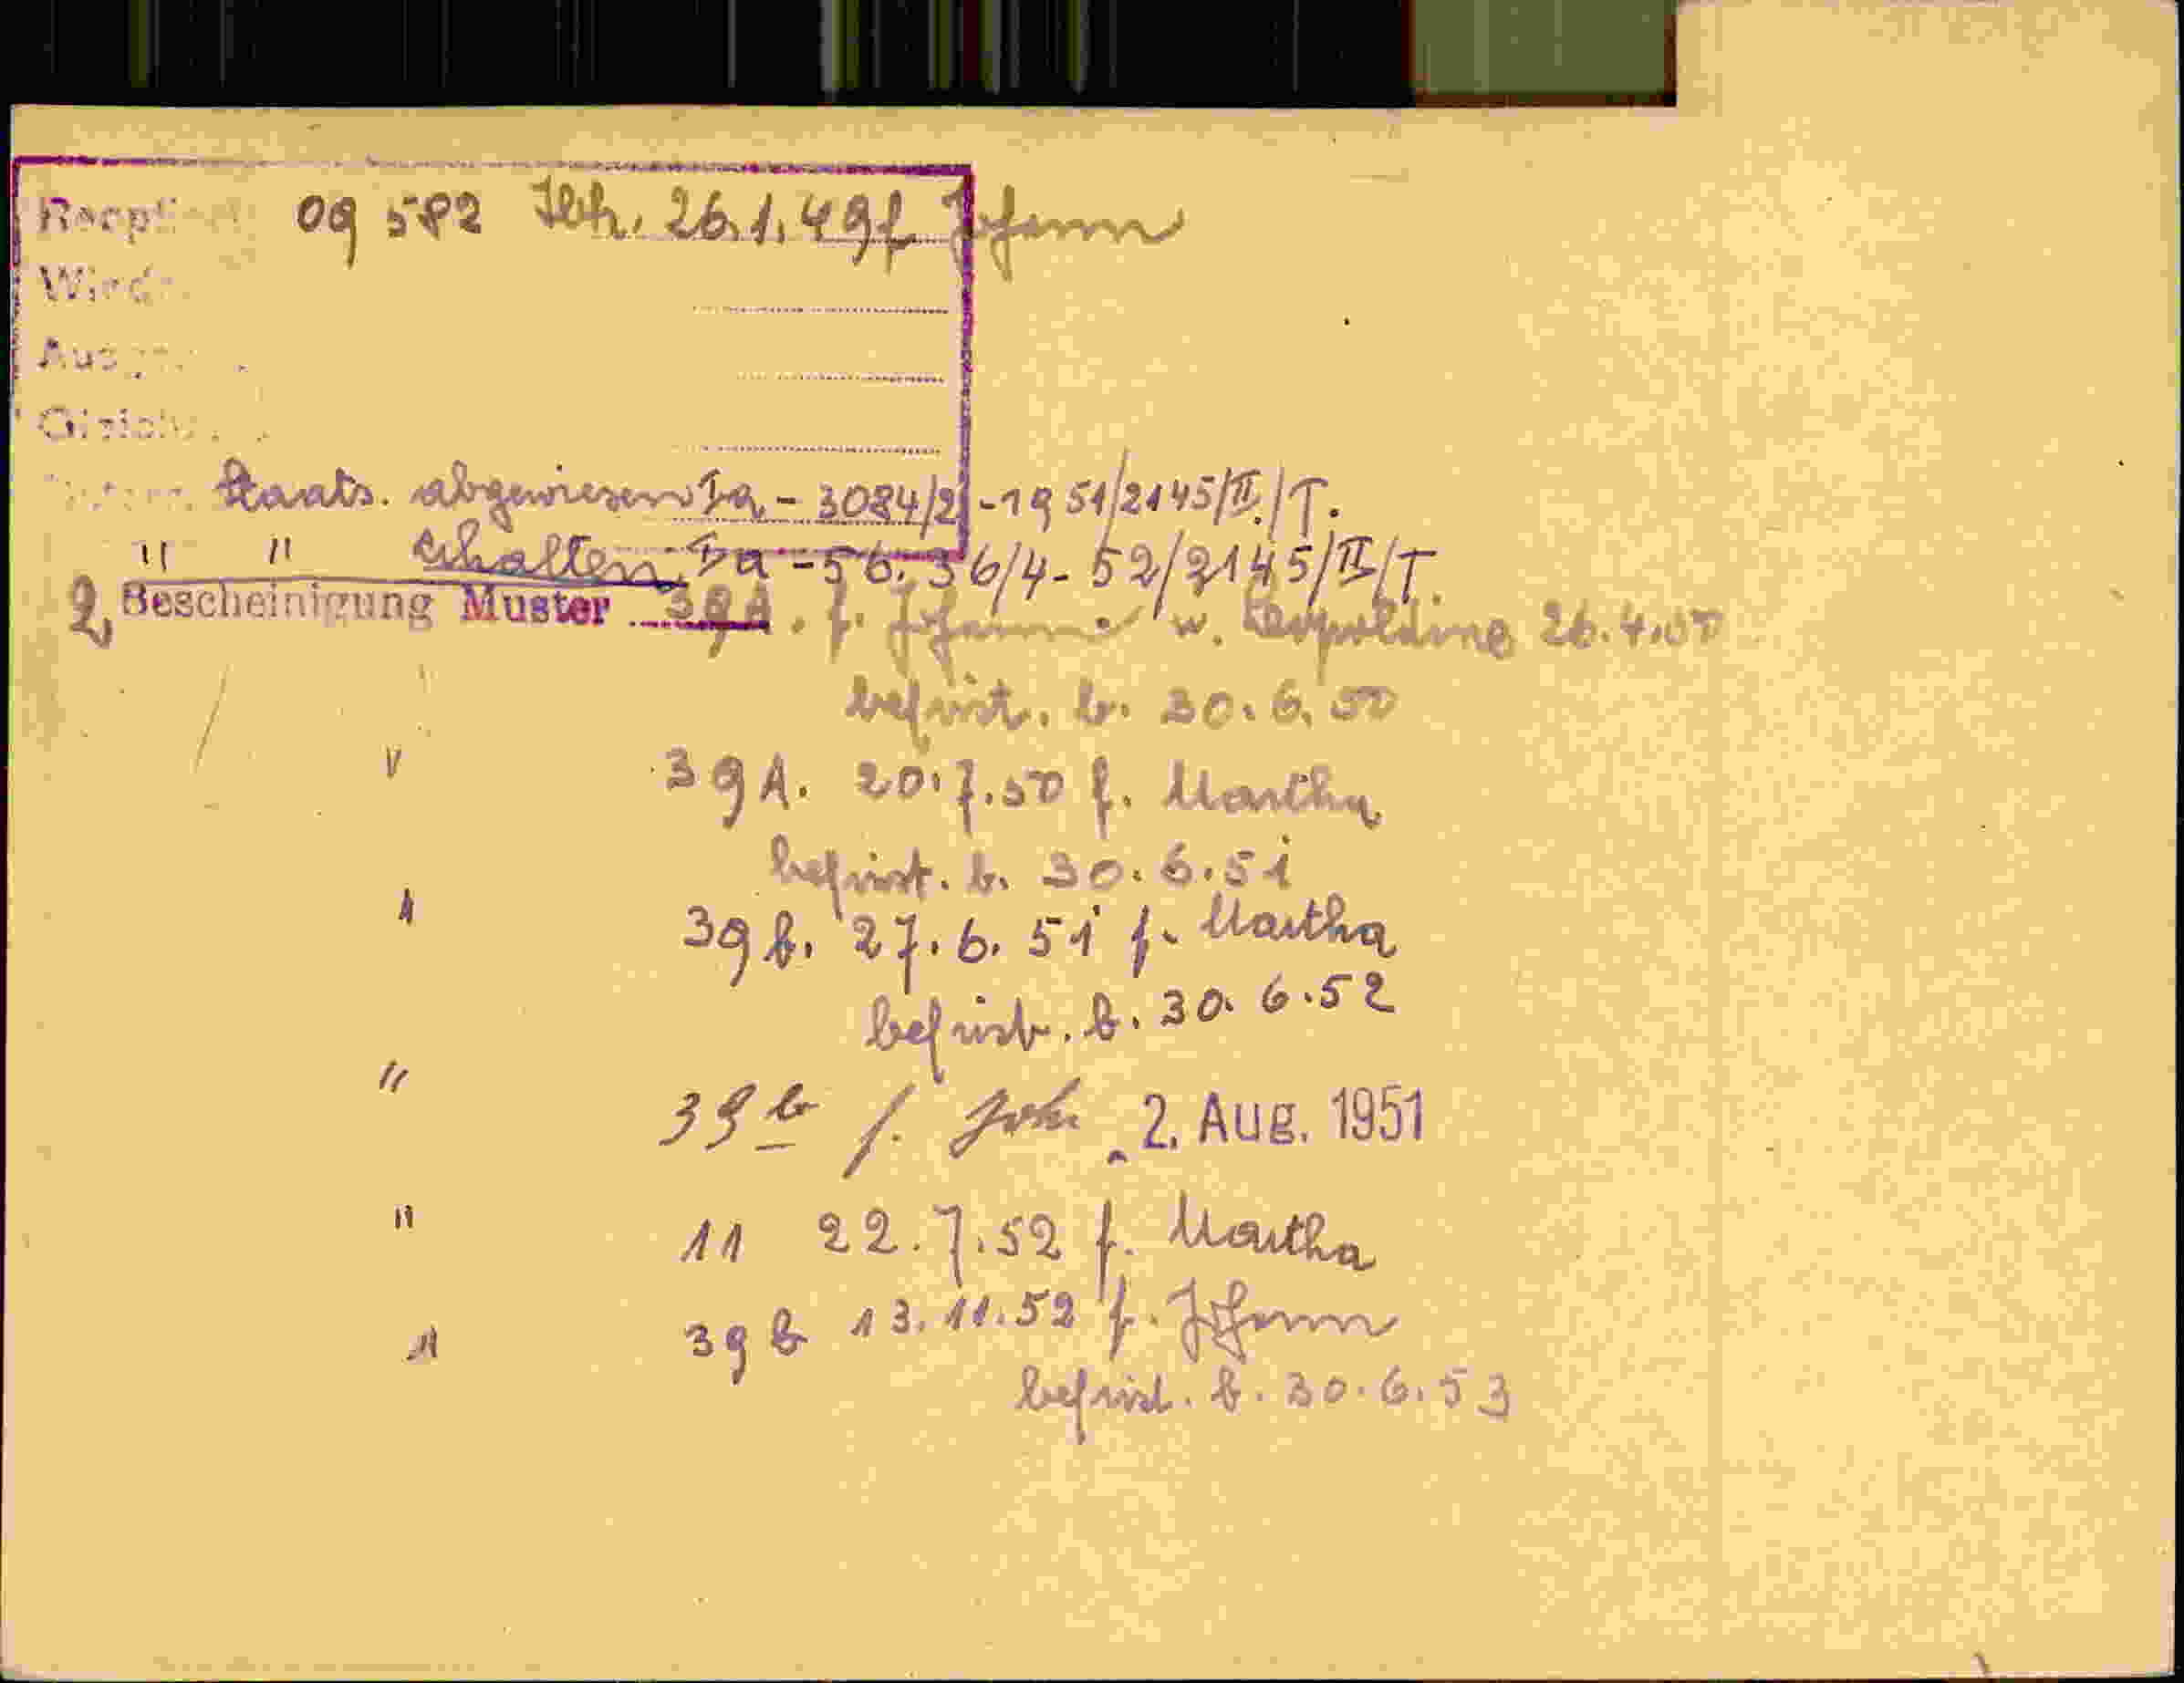 09 582 26.1.49 f Johann
Staats. abgewiesen Ia - 3084/2 - 1951/2145/II./T.
" " erhalten Ia - 56. 36/4 - 52/2145/II/T.
2, Bescheinigung Muster 39A. f. Johann w. Leopoldine 26.4.50
befrist. b. 30.6.50
" 39A. 20.7.50 f. Martha
befrist. b. 30.6.51
" 39b. 27.6.51 f. Martha
befrist. b. 30.6.52
" 39b f. Joh. 2. Aug. 1951
" 11 22.7.52 f. Martha
" 39b 13.11.52 f. Johann
befrist. b. 30.6.53